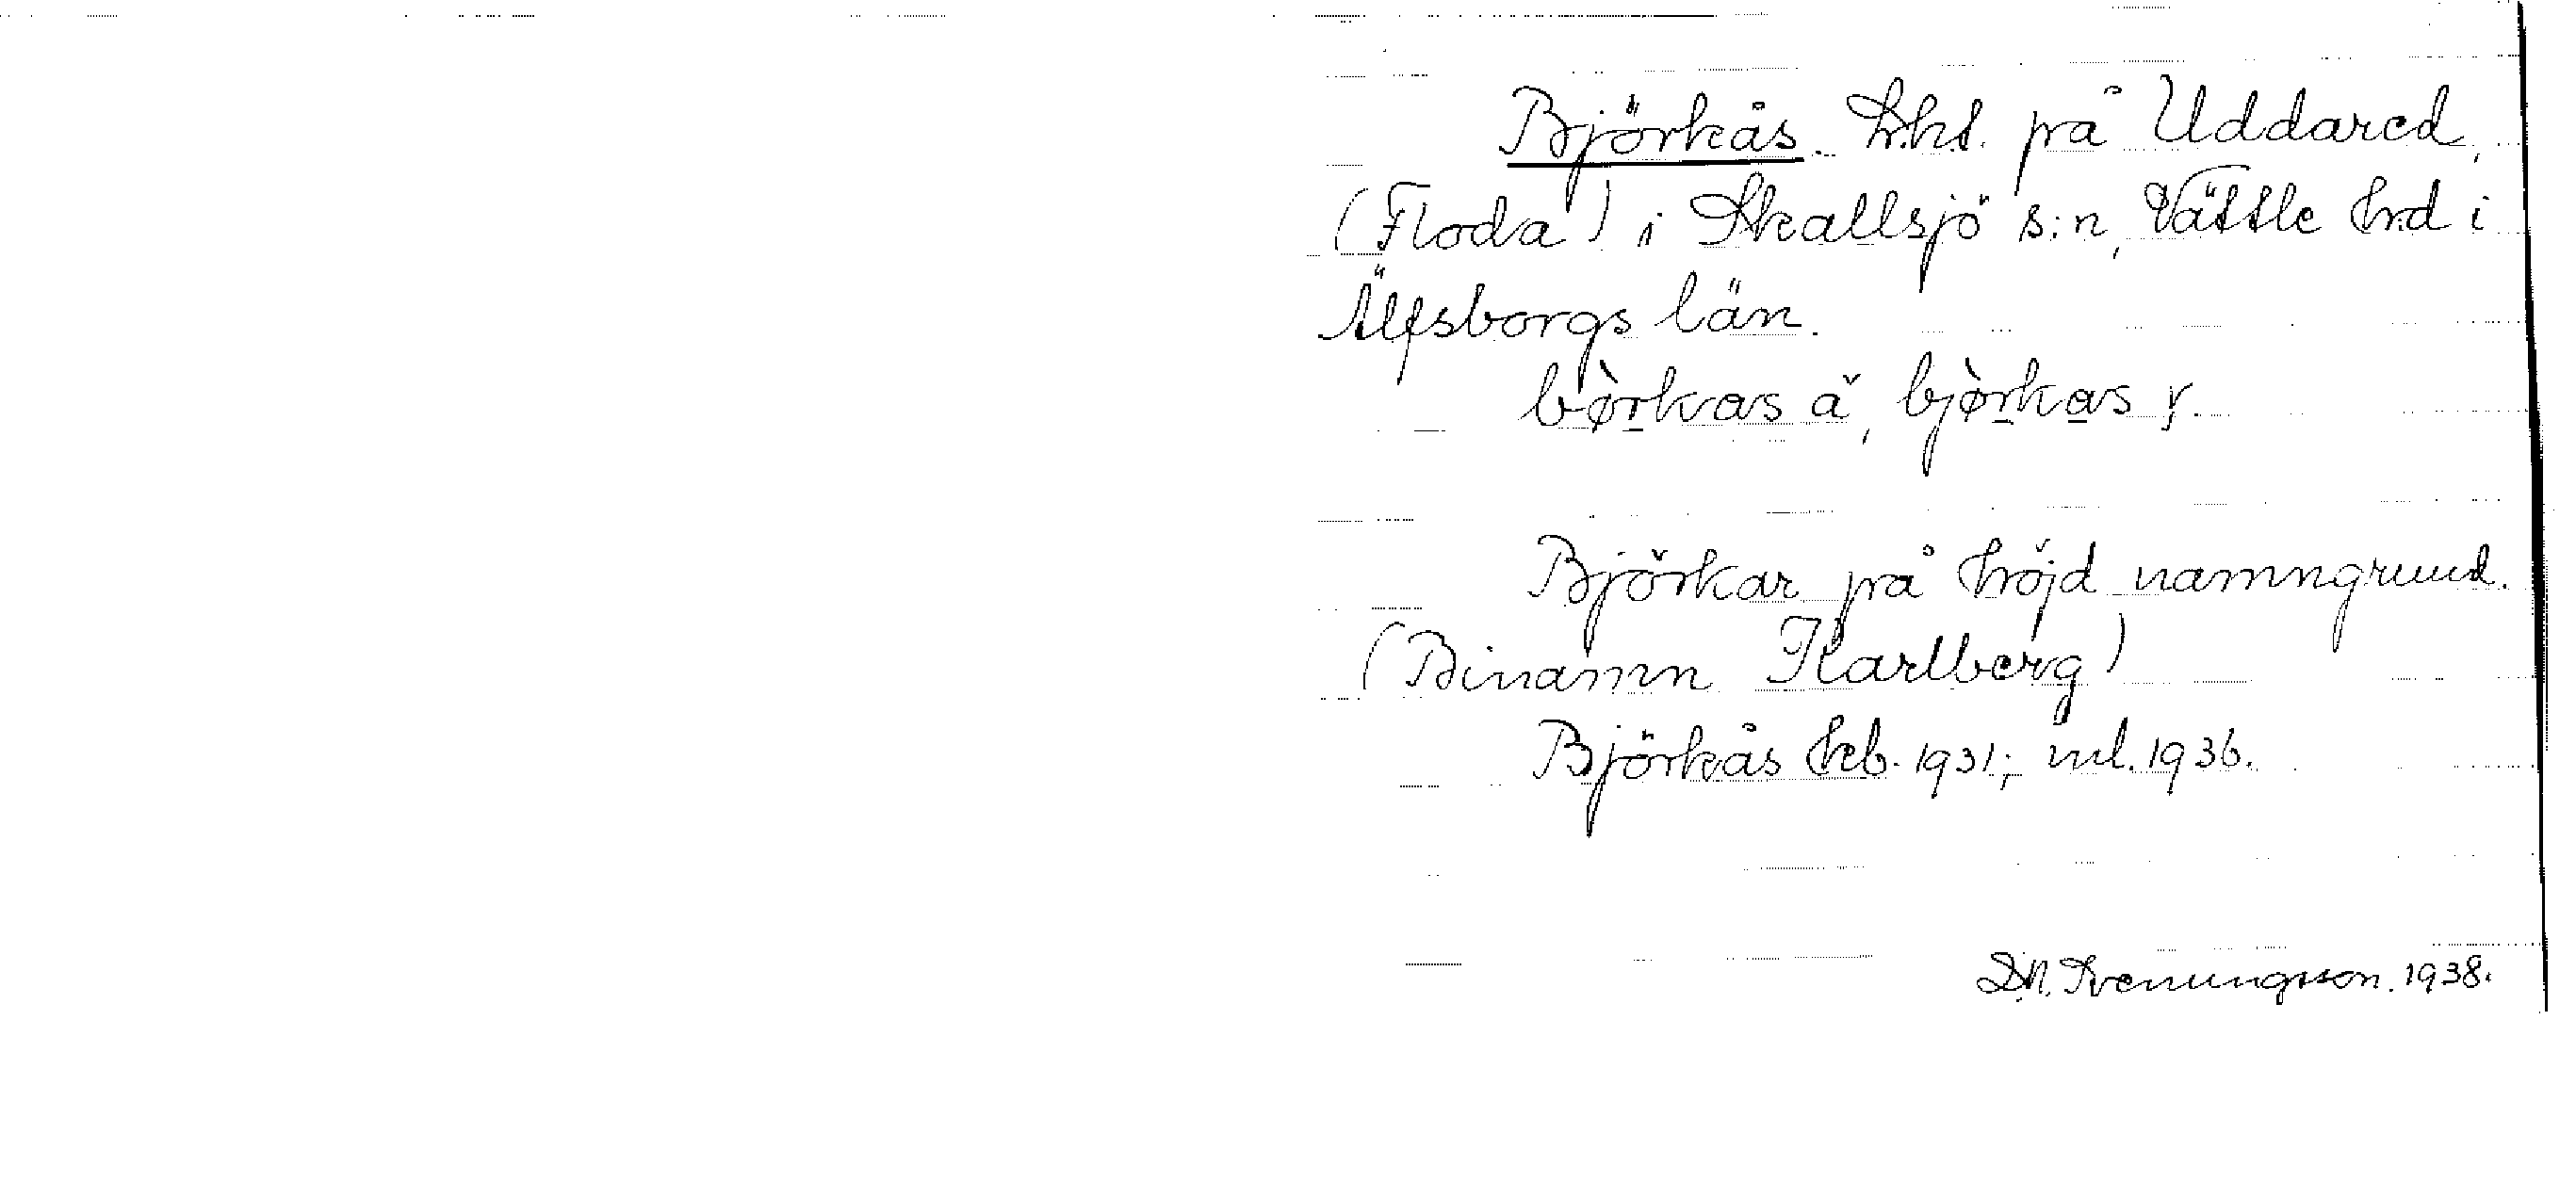 Björkås. Lht. på Uddared,
(Floda) i Skallsjö s:n, Vättle hrd i
Älfsborgs län.
bø̀rkas ä, bjø̀rkas y.
Björkar på höjd namngrund.
(Binamn Karlberg)
Björkås kb. 1931; ml. 1936.
D.N. Svenungsson. 1938.